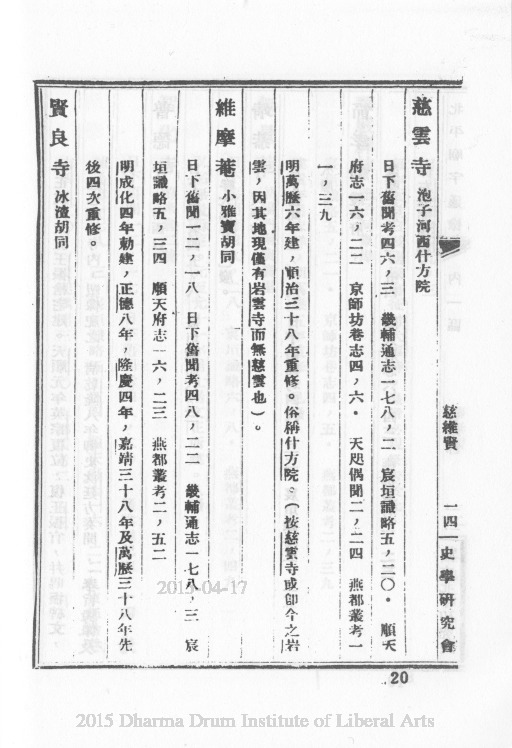 慈雲寺 泡子河西什方院
日下舊聞考四六,三 畿輔通志一七八,二 宸垣識略五,二〇。 順天
府志一六,二二 京師坊巷志四,六。 天咫偶聞二,二四 燕都叢考一
一,三九
明萬歷六年建,順治三十八年重修。俗稱什方院。(按慈雲寺或卽今之岩
雲,因其地現僅有岩雲寺而無慈雲也)。
維摩菴 小雅寶胡同
日下舊聞一二,一八 日下舊聞考四八,二二 畿輔通志一七八,三 宸
垣識略五,三四 順天府志一六,二三 燕都叢考二,五二
明成化四年勅建,正德八年,隆慶四年,嘉靖三十八年及萬歷三十八年先
後四次重修。
賢良寺 冰渣胡同
慈維賢 一四 史學研究會
20
2015-04-17
2015 Dharma Drum Institute of Liberal Arts